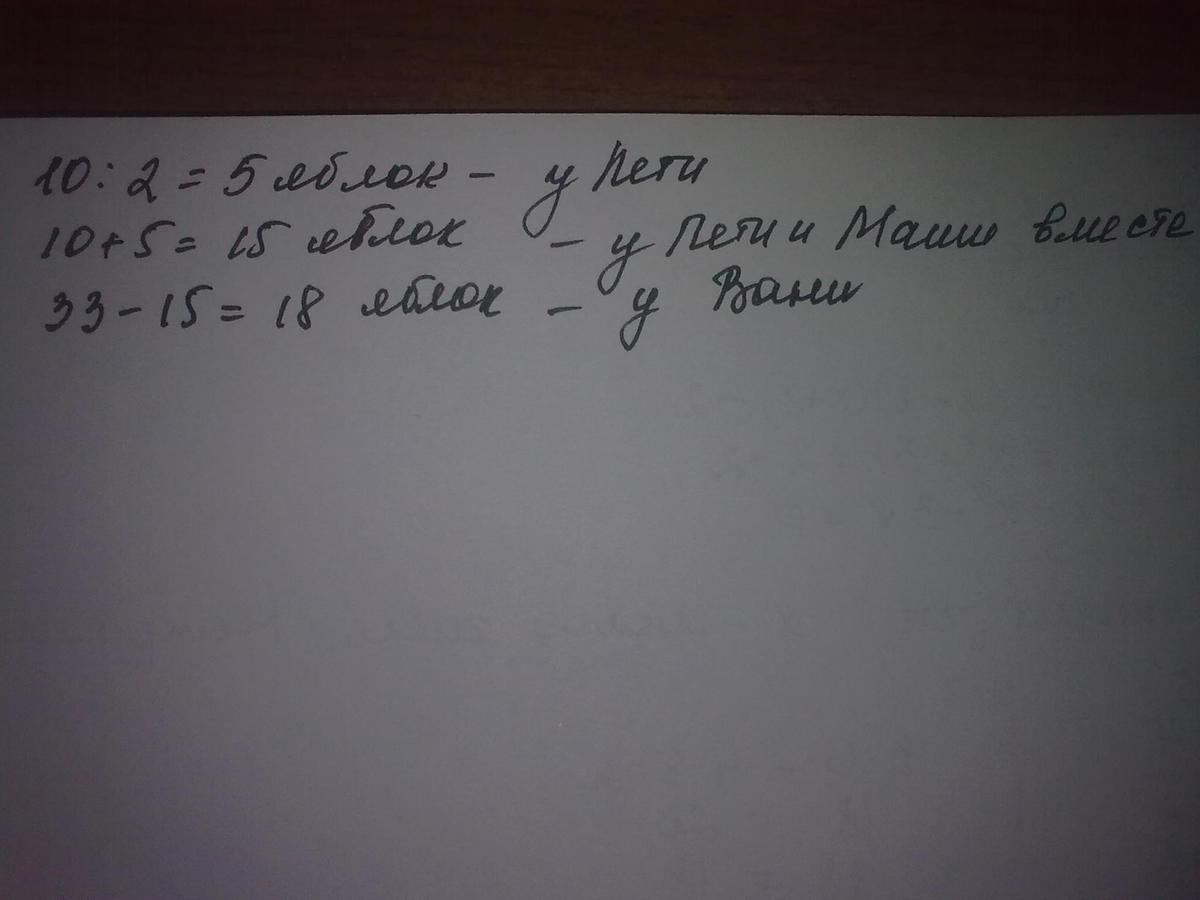 10 : 2 = 5 яблок - у Пети
10 + 5 = 15 яблок - у Пети и Маши вместе
33 - 15 = 18 яблок - у Вани